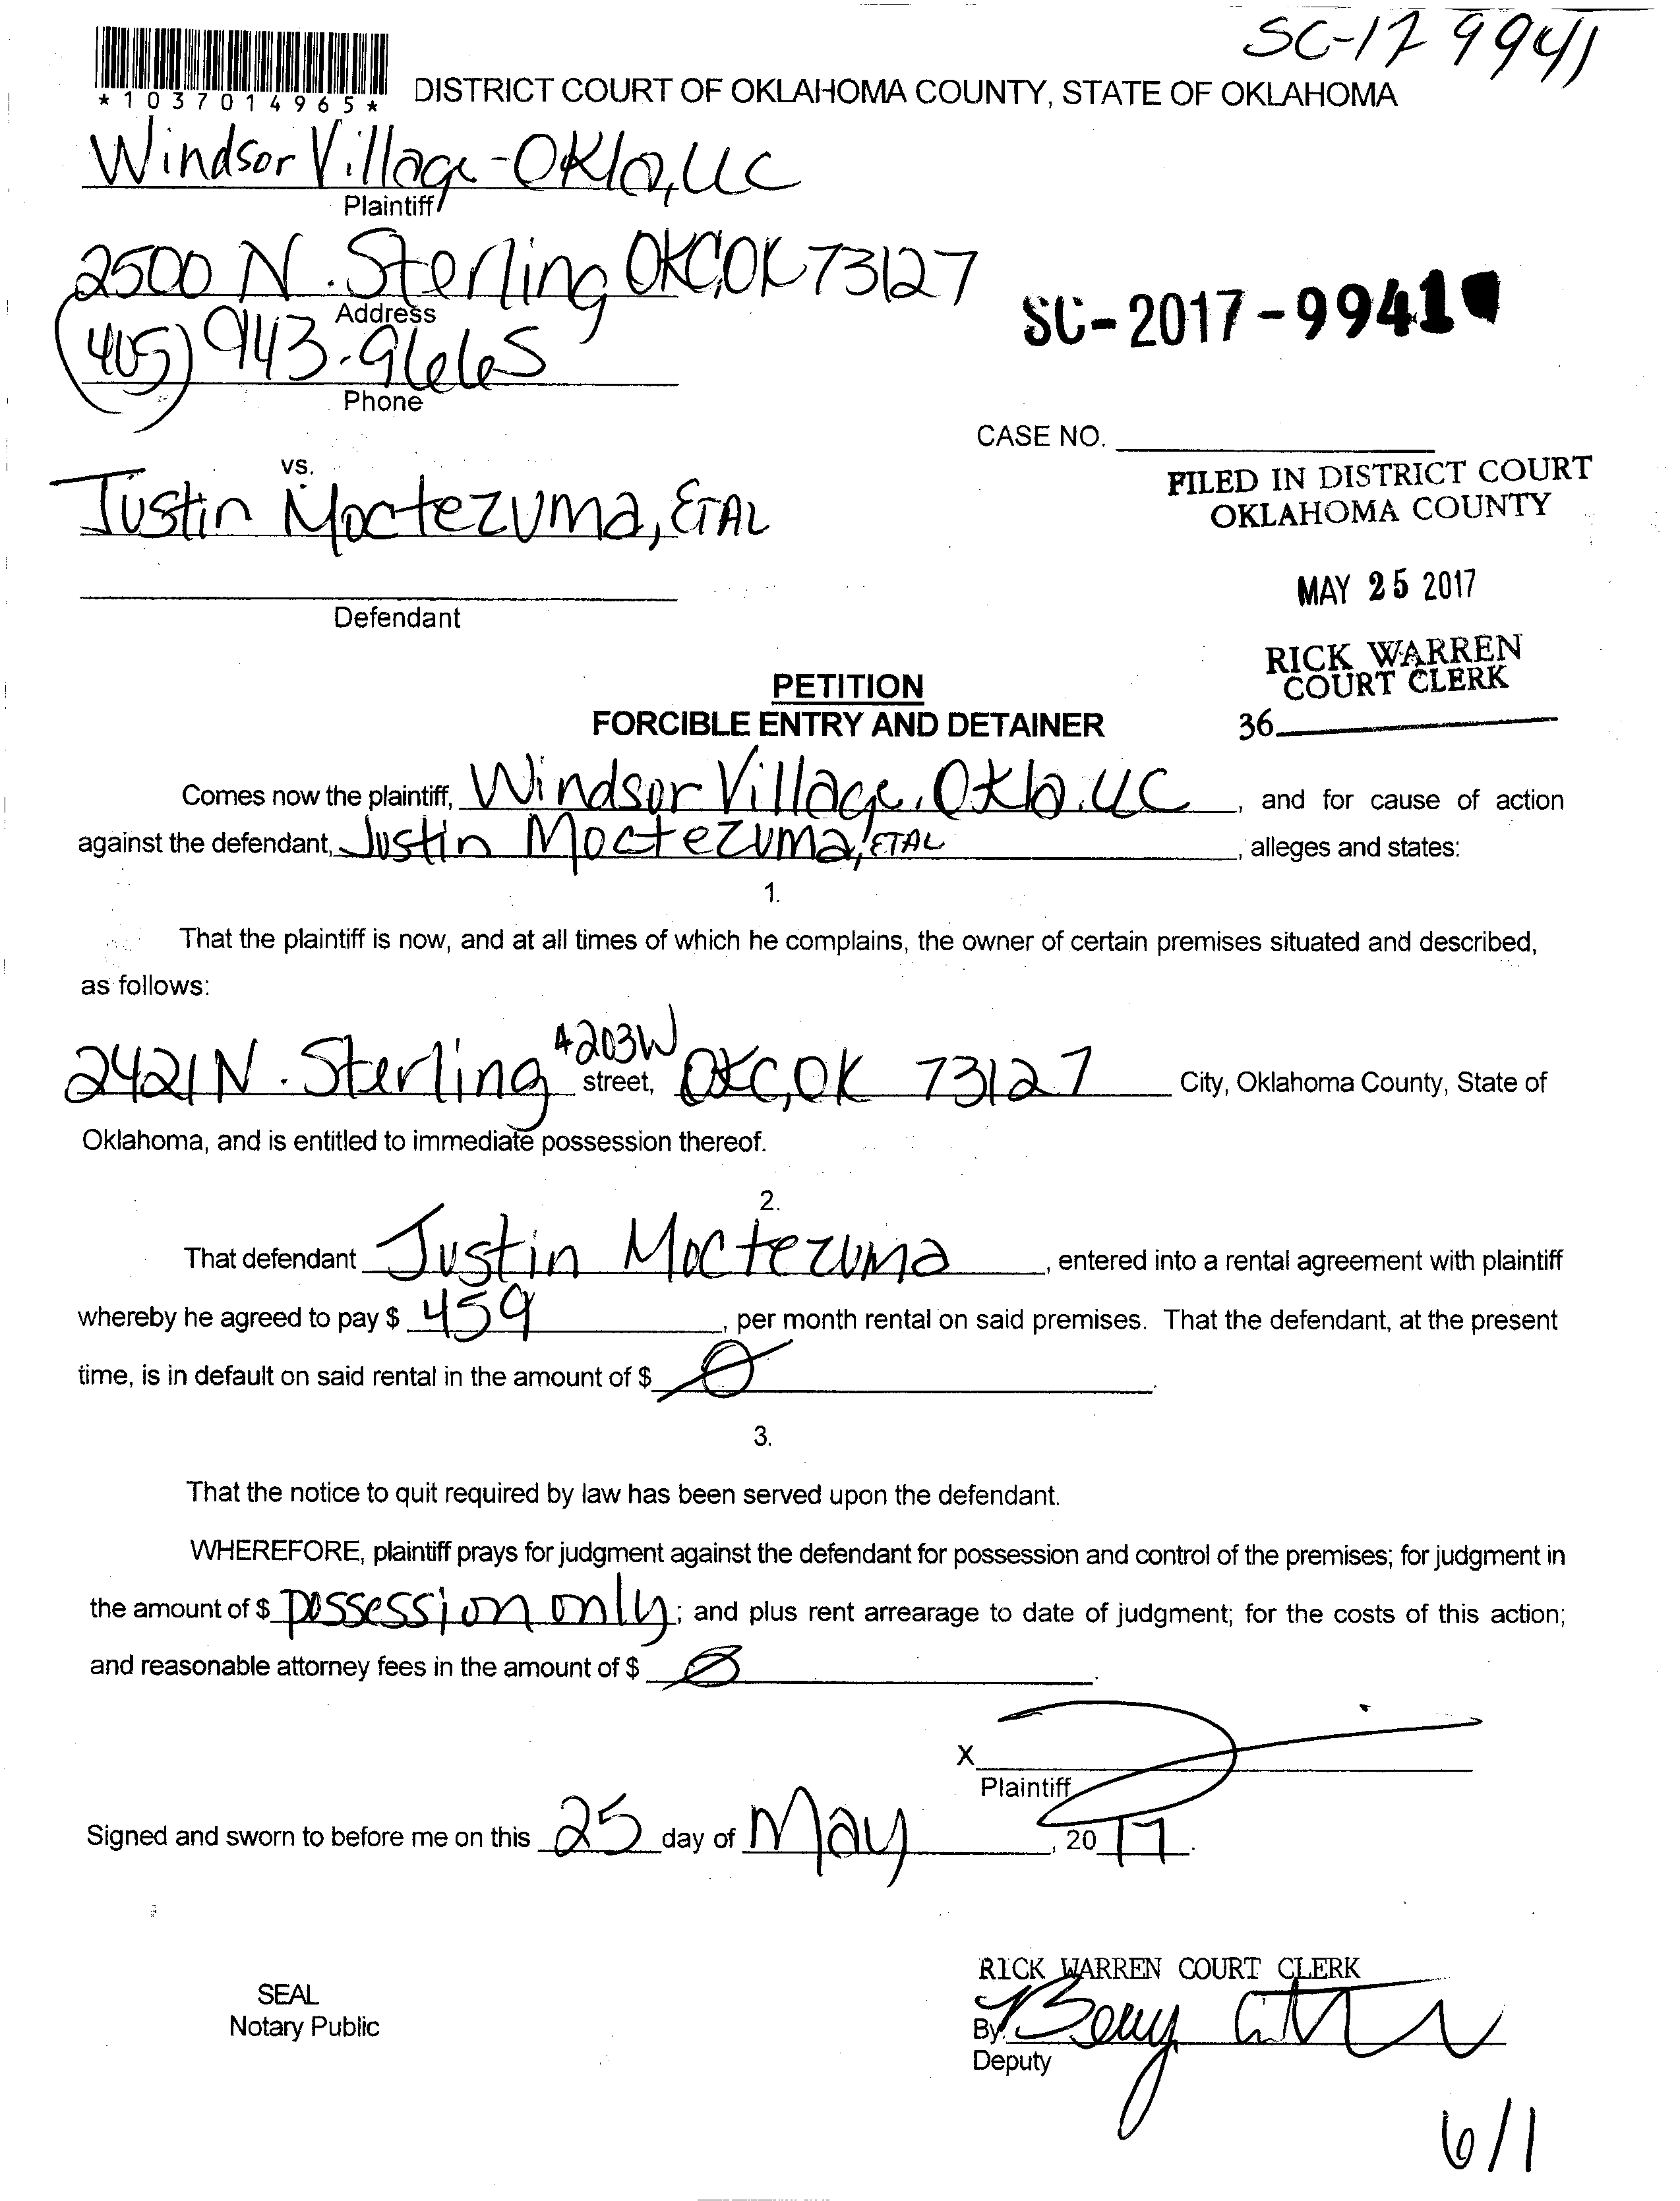 SC-17 9941
*1037014965*
DISTRICT COURT OF OKLAHOMA COUNTY, STATE OF OKLAHOMA
Windsor Village-Okla, LLC
Plaintiff
2500 N. Sterling OKC, OK 73127
Address
(405) 943-9665
Phone
SC-2017-9941
CASE NO.
vs.
Justin Moctezuma, ETAL
Defendant
FILED IN DISTRICT COURT
OKLAHOMA COUNTY
MAY 25 2017
RICK WARREN
COURT CLERK
36
PETITION
FORCIBLE ENTRY AND DETAINER
Comes now the plaintiff, Windsor Village, Okla. LLC, and for cause of action
against the defendant, Justin Moctezuma, ETAL, alleges and states:
1.
That the plaintiff is now, and at all times of which he complains, the owner of certain premises situated and described,
as follows:
2421 N. Sterling #203W street, OKC, OK 73127 City, Oklahoma County, State of
Oklahoma, and is entitled to immediate possession thereof.
2.
That defendant Justin Moctezuma, entered into a rental agreement with plaintiff
whereby he agreed to pay $ 459, per month rental on said premises. That the defendant, at the present
time, is in default on said rental in the amount of $ Ø.
3.
That the notice to quit required by law has been served upon the defendant.
WHEREFORE, plaintiff prays for judgment against the defendant for possession and control of the premises; for judgment in
the amount of $ possession only; and plus rent arrearage to date of judgment; for the costs of this action;
and reasonable attorney fees in the amount of $ Ø.
X
Plaintiff
Signed and sworn to before me on this 25 day of May, 2017.
SEAL
Notary Public
RICK WARREN COURT CLERK
By
Deputy
6/1